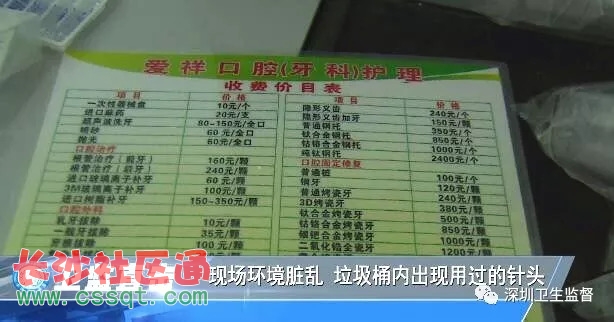 爱祥口腔(牙科)护理
收费价目表
项目 价格
一次性器械盘 10元/个
进口麻药 20元/支
超声波洗牙 80-150元/全口
喷砂 60元/全口
抛光 60元/全口
口腔治疗
根管治疗(前牙) 160元/颗
根管治疗(后牙) 240元/颗
进口玻璃离子补牙 60元/颗
3M玻璃离子补牙 100元/颗
进口树脂补牙 150-350元/颗
口腔外科
乳牙拔除 10元/颗
35元/颗
100元/颗
项目 价格
隐形义齿 240元/个
隐形义齿加牙 150元/颗
普通钢托 350元/个
钛合金钢托 850元/个
钴铬合金钢托 1000元/个
纯钛钢托 2400元/个
口腔固定修复
普通桩 100元/个
铜牙 120元/颗
普通烤瓷牙 240元/颗
3D烤瓷牙 380元/颗
钛合金烤瓷牙 500元/颗
钴铬合金烤瓷牙 850元/颗
1000元/颗
二氧化锆全瓷牙 1200元/颗
长沙社区通
www.cssqt.com
现场环境脏乱 垃圾桶内出现用过的针头
深圳卫生监督